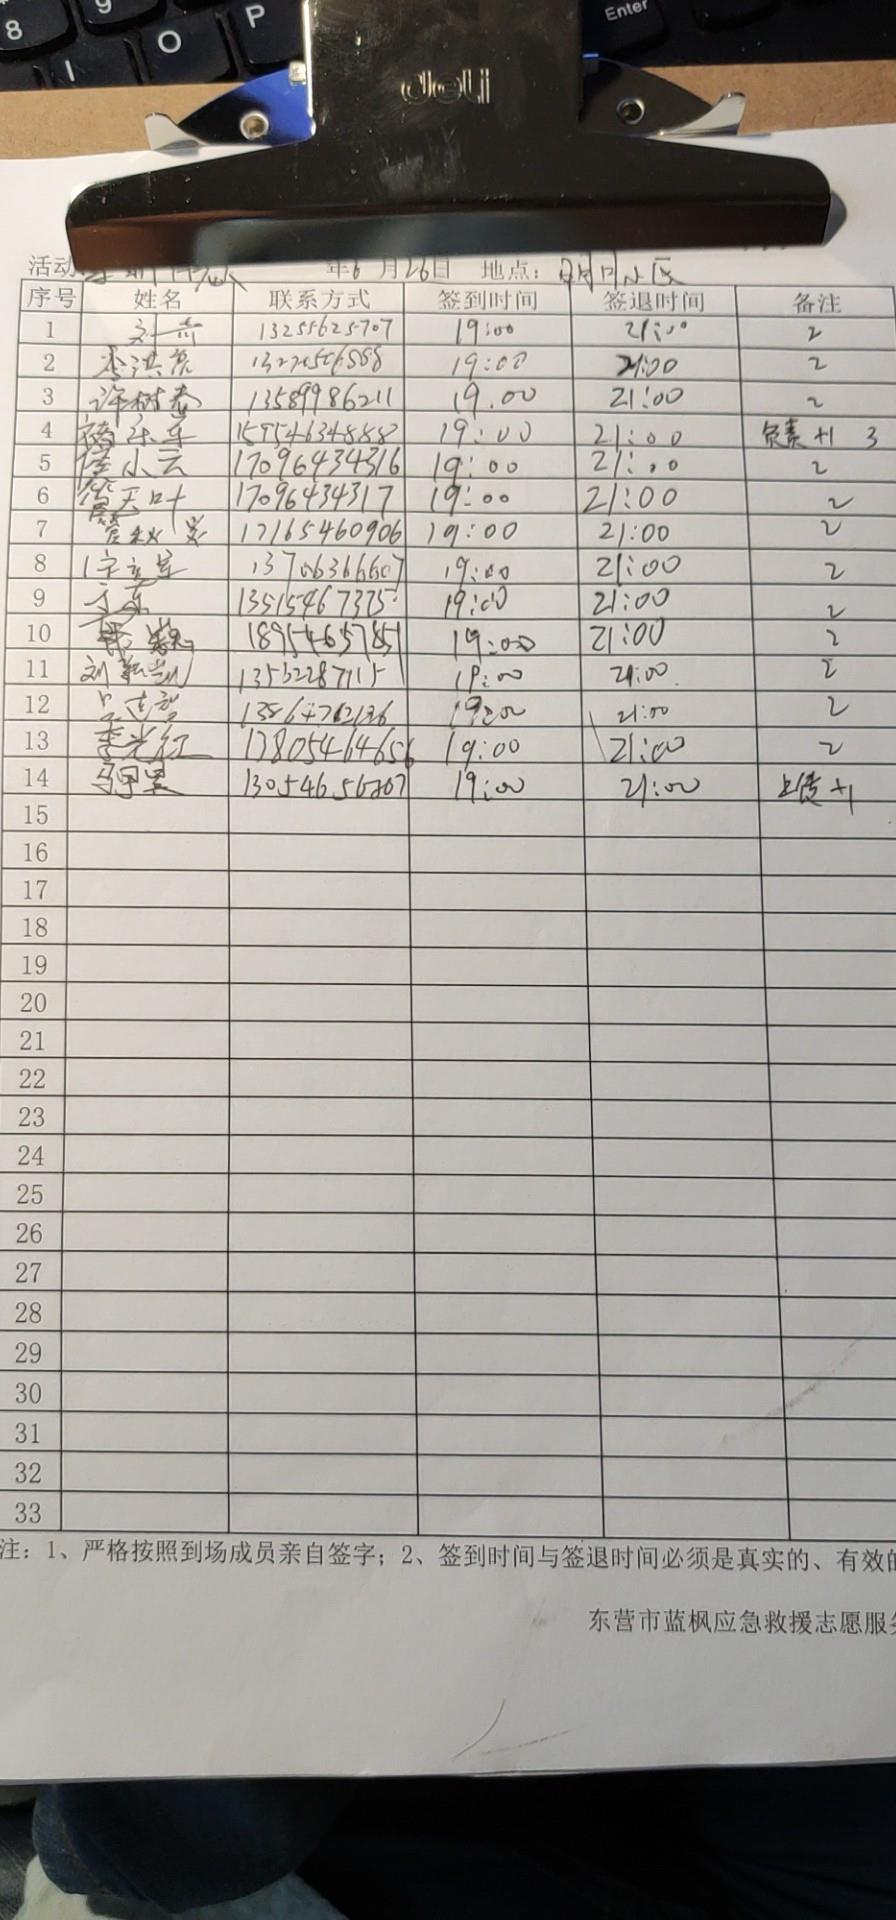 8 9 O P Enter
I
deli
活动 年6月26日 地点: 小区
序号 姓名 联系方式 签到时间 签退时间 备注
1 刘 13255625707 19:00 21:00 2
2 李洪亮 19:00 21:00 2
3 许树 13589986211 19.00 21:00 2
4 15954634888 19:00 21:00 负责+1 3
5 小云 17096434316 19:00 21:00 2
6 天叶 17096434317 19:00 21:00 2
7 17165460906 19:00 21:00 2
8 13706366607 19:00 21:00 2
9 13515467375 19:00 21:00 2
10 18954657851 19:00 21:00 2
11 刘 19:00 21:00 2
12 19:00 21:00 2
13 李光红 17805464656 19:00 21:00 2
14 19:00 21:00 上传+1
15
16
17
18
19
20
21
22
23
24
25
26
27
28
29
30
31
32
33
注：1、严格按照到场成员亲自签字；2、签到时间与签退时间必须是真实的、有效的
东营市蓝枫应急救援志愿服务